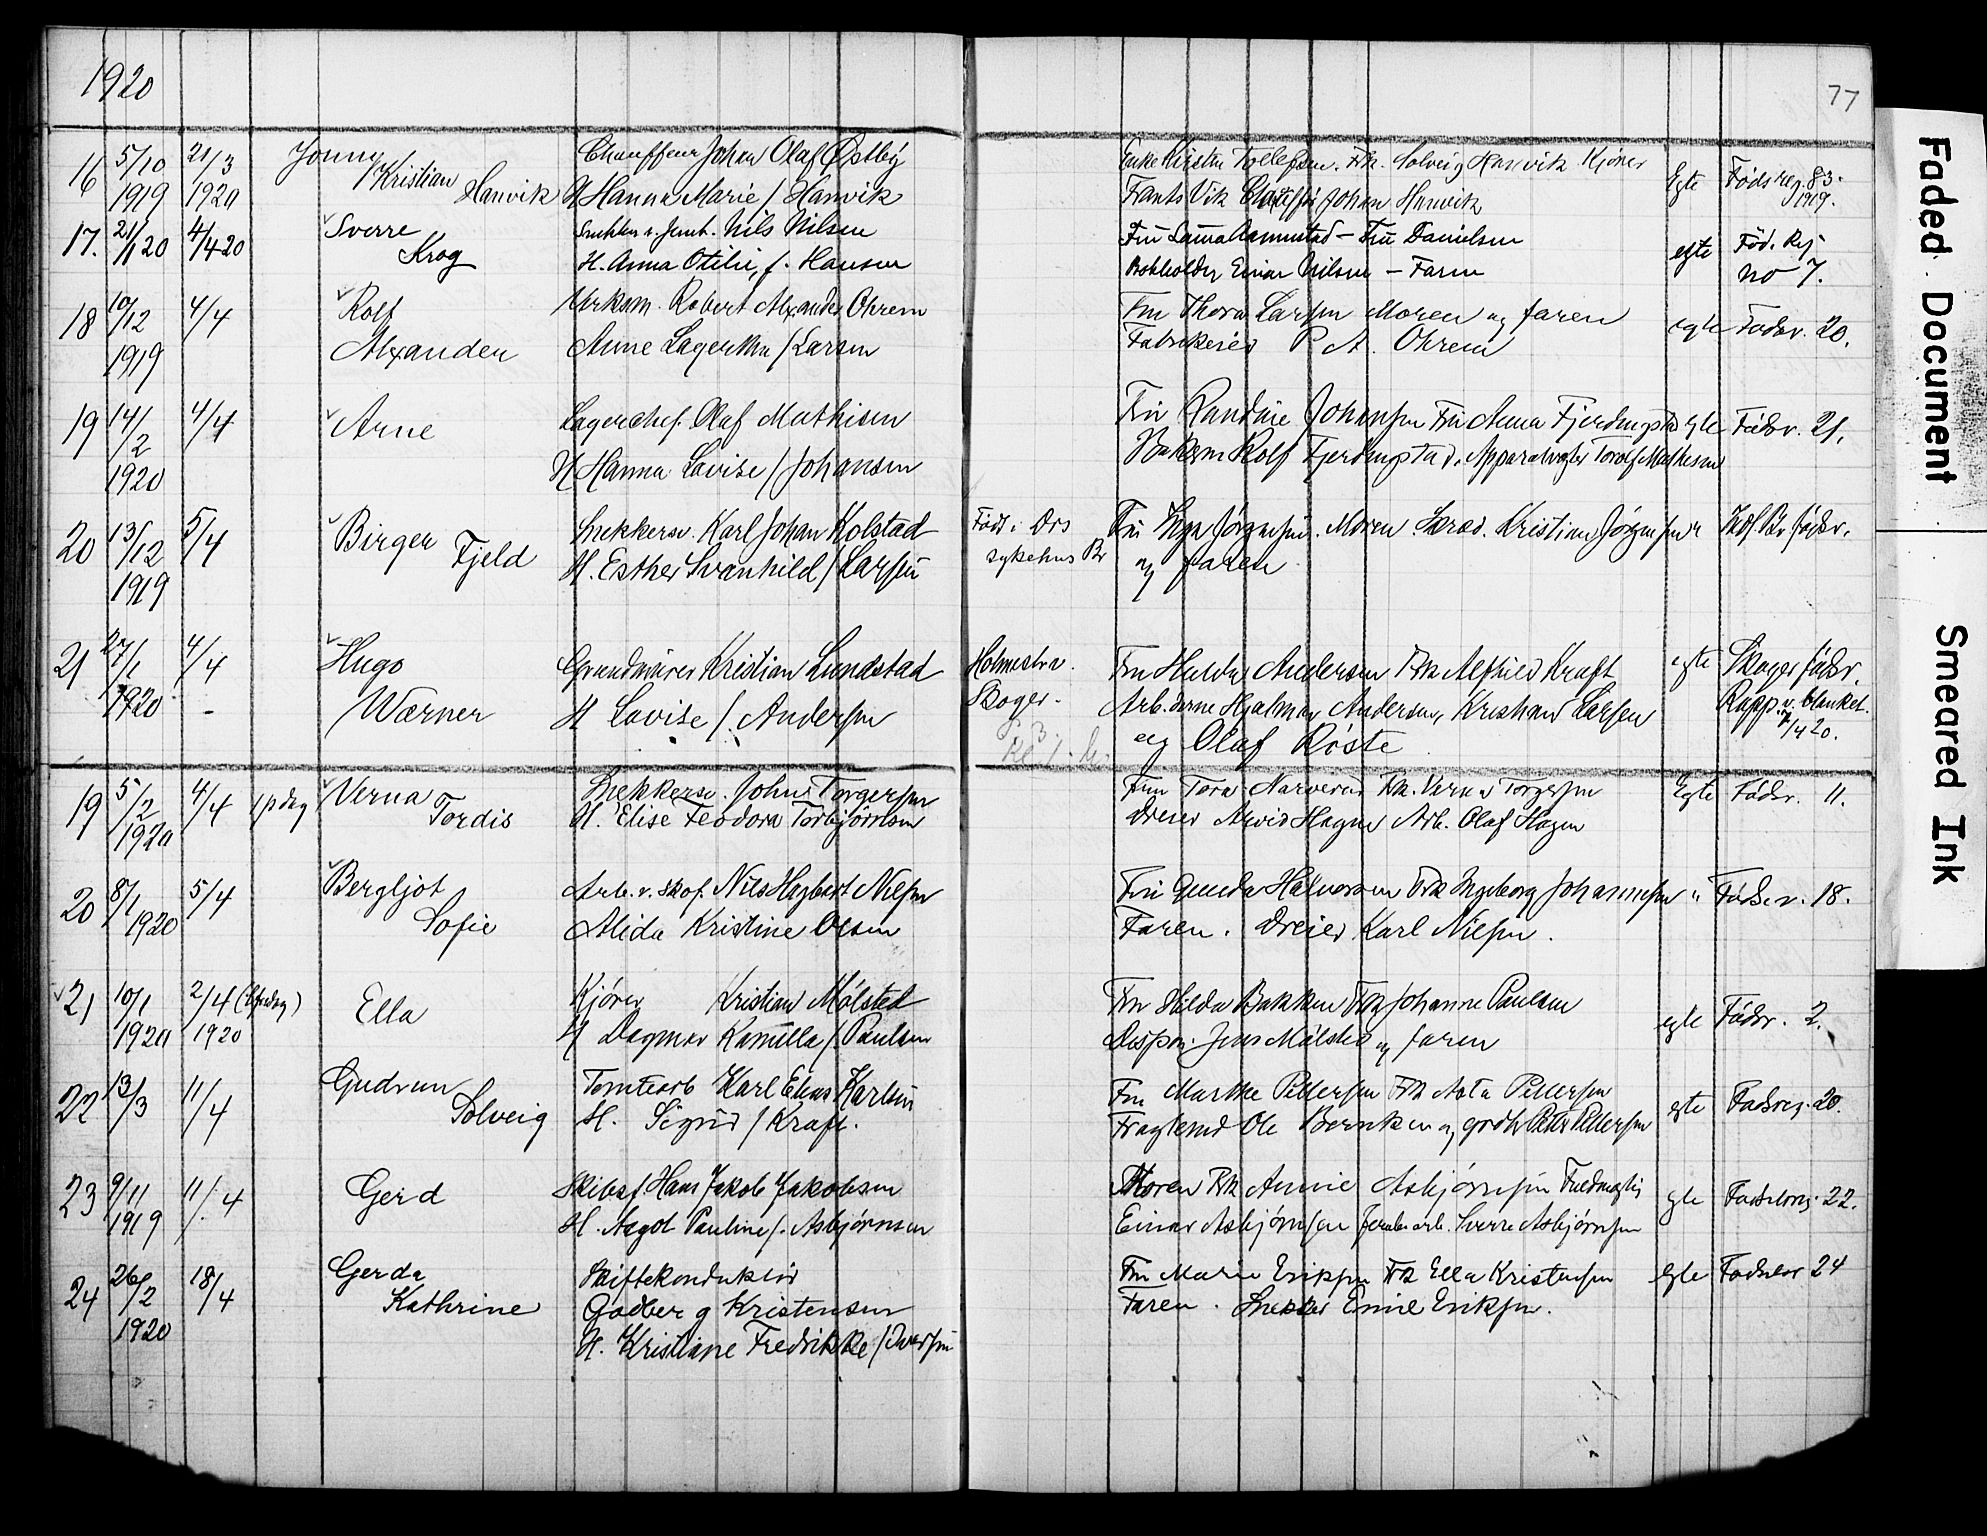 1920
77
16 5/10 1919 21/3 1920 Jonny Kristian Hanvik Chauffeur Johan Olaf Østby
H Hanna Marie / Hanvik
Enke Kirsten Tollefsen. Frk. Solveig Hanvik Kjører
Frants Vik Johan Hanvik Egte Føds reg. 83. 1919.
17. 21/1 20 4/4 20 Sverre Krog Nils Nilsen
H. Anna Otilie, f. Hansen
Fru Laura Aamnestad - Fru Danielsen
Einar Nilsen - Faren egte Fød. Rej. no 7.
18 10/12 1919 4/4 Rolf Alxander Verksm. Robert Alxander Ohrem
Anne Lagertha / Larsen
Fru Thora Larsen Moren og faren
Fabrikeier P. A. Ohrem egte Fødsr. 20.
19 14/2 1920 4/4 Arne Lagerchef. Olaf Mathisen
H Hanna Lovise / Johansen
Fru Randine Johansen Fru Anna Fjerdingstad egte Fødsr. 21.
Bakerm Rolf Fjerdingstad. Torolf Mathisen
20 13/12 1919 5/4 Birger Fjeld Snekkersv. Karl Johan Kolstad
H. Esther Svanhild / Larsen
Født i Drs sykehus Br
Fru Inga Jørgensen. Moren. Skræd. Kristian Jørgensen
og faren
21 27/1 1920 4/4 - Hugo Wærner Grundmurer Kristian Lundstad
H Lovise / Andersen
Holmestr. Skoger.
Fru Hulda Andersen Frk Alfhild Kraft
Arb. Hjalmar Andersen, Kristian Larsen
og Olaf Røste
egte Skoger fødsr.
Rapp. v. blanket.
7/4 20.
19 5/2 1920 4/4 1 pdag Verna Tordis Snekkersv. Johns Torgersen
H. Elise Teodora Torbjørnsen
Fru Tora Narverud Frk. Verna Torgersen
Dreier Arvid Hagen Arb. Olaf Hagen Egte Fødsr. 11.
20 8/1 1920 5/4 Bergljot Sofie Arb. v. skof. Nils Hagbart Nilsen
Alida Kristine Olsen
Fru Gunda Halvorsen Frk Ingeborg Johannesen " Fødsr. 18.
Faren. Dreier Karl Nilsen.
21 10/1 1920 2/4 1920 Ella Kjører Kristian Mølsted
H Dagmar Kamilla / Paulsen
Fru Hilda Bakken Frk Johanne Paulsen
Dispon. Jens Mølsted og faren egte Fødsr. 2.
22 13/3 11/4 Gudrun Solveig Tomtearb Karl Elias Karlsen
H. Sigrid / Kraft.
Fru Marthe Pettersen Frk Asta Pettersen
Ole Berntsen og Peter Pettersen egte Fødsreg. 20.
23 9/11 1919 11/4 Gerd Skibsf Hans Jakob Jakobsen
H. Aagot Pauline /. Asbjørnsen
Moren Frk Annie Asbjørnsen Fuldmægtig
Einar Asbjørnsen Jernbarb. Sverre Asbjørnsen egte Fødselsreg. 22.
24 26/2 1920 18/4 Gerda Kathrine Skiftekonduktør
Godberg Kristensen
H. Kristiane Fredrikke / Iversen
Fru Marie Eriksen Frk Ella Kristensen
Faren. Snekker Emil Eriksen. Egte Fødselsr 24
Faded Document
Smeared Ink